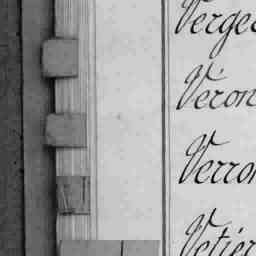 Verge
Véron
Verron
Vetier